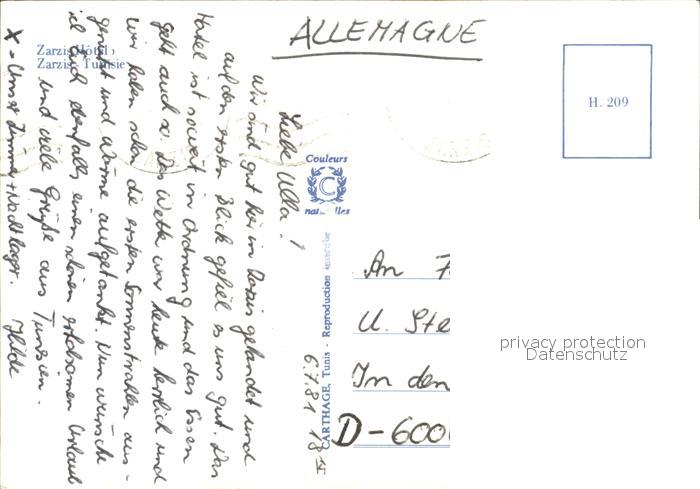 ALLEMAGNE
Zarzis Hôtel
Zarzis - Tunisie
H. 209
Couleurs
naturelles
CARTHAGE, Tunis - Reproduction interdite
6.7.81 18
Liebe Ulla!
Wir sind gut hier in Zarzis gelandet und
auf den ersten Blick gefiel es uns gut. Das
Hotel ist soweit in Ordnung und das Essen
geht auch so. Das Wetter war heute herrlich und
wir haben schon die ersten Sonnenstrahlen aus-
genützt und Wärme aufgetankt. Nun wünsche
ich Dich ebenfalls einen schönen erholsamen Urlaub
und viele Grüße aus Tunesien.
X = Unser Zimmer + Nachtlager. Hilde
An F
U. Ste
In den
D-600
privacy protection
Datenschutz